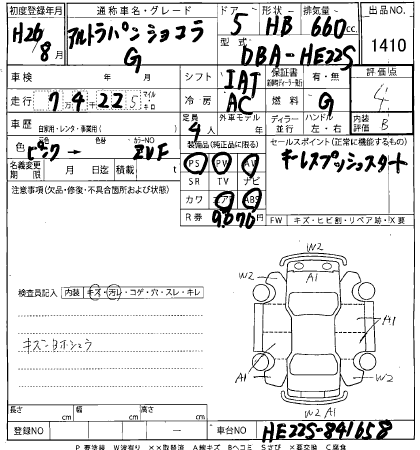 初度登録年月 通称車名・グレード ドア 形状 排気量 出品NO.
H26/8月 アルトラパンショコラ G 5 HB 660cc 1410
型式 DBA-HE22S
車検 年 月 シフト IAT 保証書 有・無 評価点 4
走行 7万4千225 マイル キロ 冷房 AC 燃料 G 内装評価 B
車歴 自家用・レンタ・事業用( ) 定員 4人 外車モデル 年 ディラー 並行 ハンドル 左・右
色 ピンク → 元色 色替 カラーNO ZVF
装備品(純正品に限る) セールスポイント(正常に機能するもの)
PS PW AW キーレスプッシュスタート
名義変更期限 月 日迄 積載 t SR TV ナビ
注意事項(欠品・修復・不具合箇所および状態) カワ エアB ABS
R券 9,070 円 FW キズ・ヒビ割・リペア跡・X要
W2
W2 A1
検査員記入 内装 キズ・汚レ・コゲ・穴・スレ・キレ
A1
キズ
A1 W2
W2 A1
長さ cm 幅 cm 高さ cm
登録NO 車台NO HE22S-841658
P 要塗装 W波有り ××取替済 A線キズ Bヘコミ Sさび X要交換 C腐食